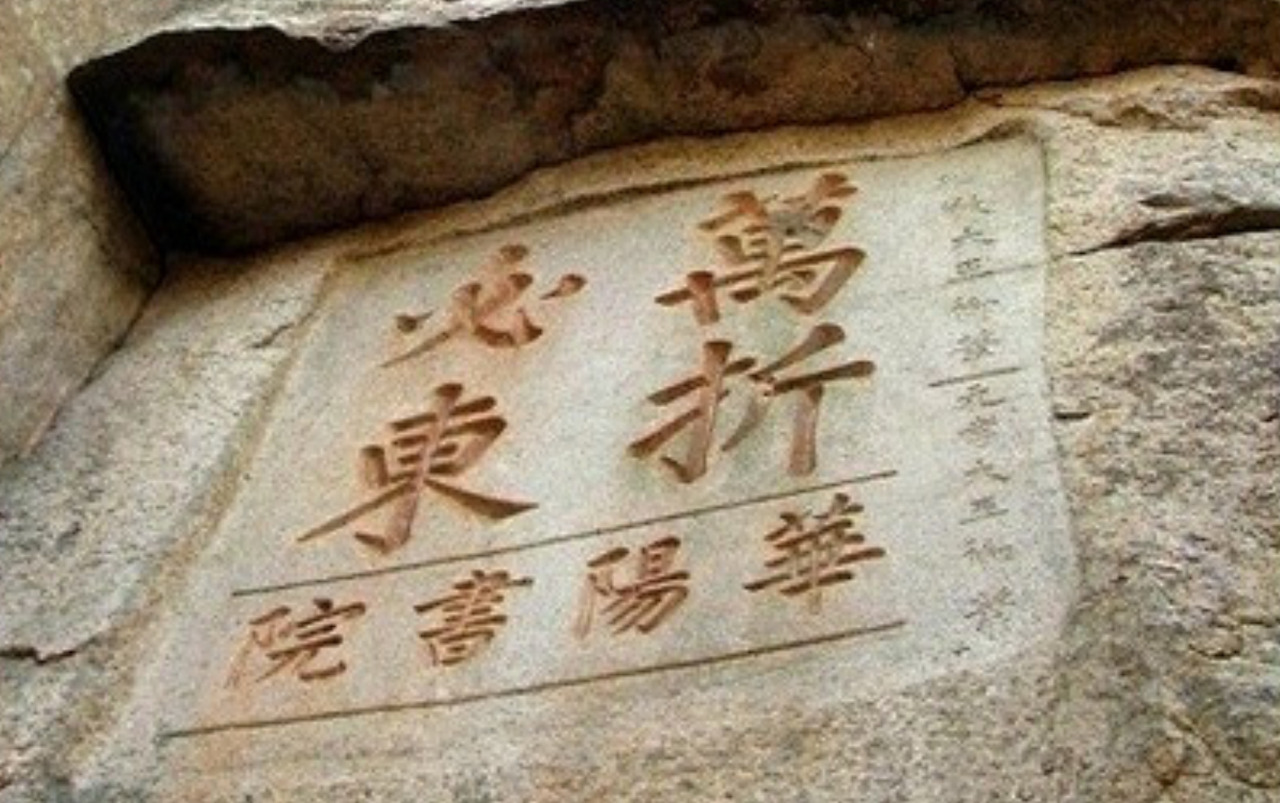 萬折
必東
華陽書院